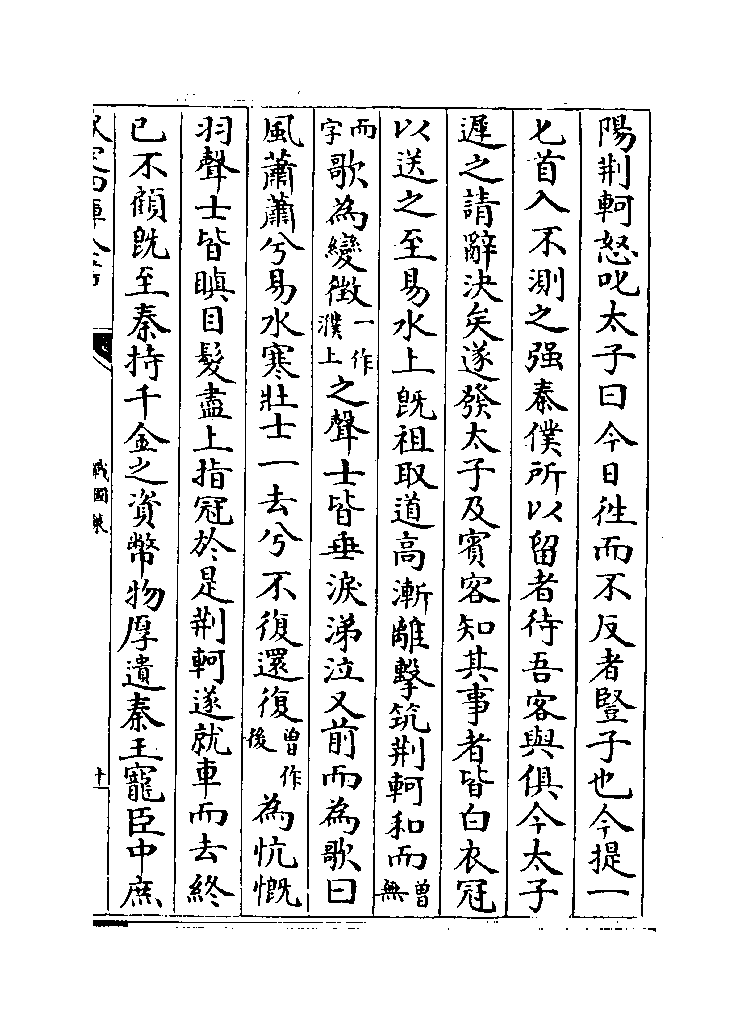 陽荆軻怒叱太子曰今日徃而不反者豎子也今提一
匕首入不測之强秦僕所以留者待吾客與俱今太子
遲之請辭決矣遂發太子及賔客知其事者皆白衣冠
以送之至易水上旣祖取道高漸離擊筑荆軻和而曾無
而字歌為變徵一作濮上之聲士皆垂淚涕泣又前而為歌曰
風蕭蕭兮易水寒壯士一去兮不復還復曾作後為忼慨
羽聲士皆瞋目髮盡上指冠於是荆軻遂就車而去終
已不顧旣至秦持千金之資幣物厚遺秦王寵臣中庶
戰國策
十